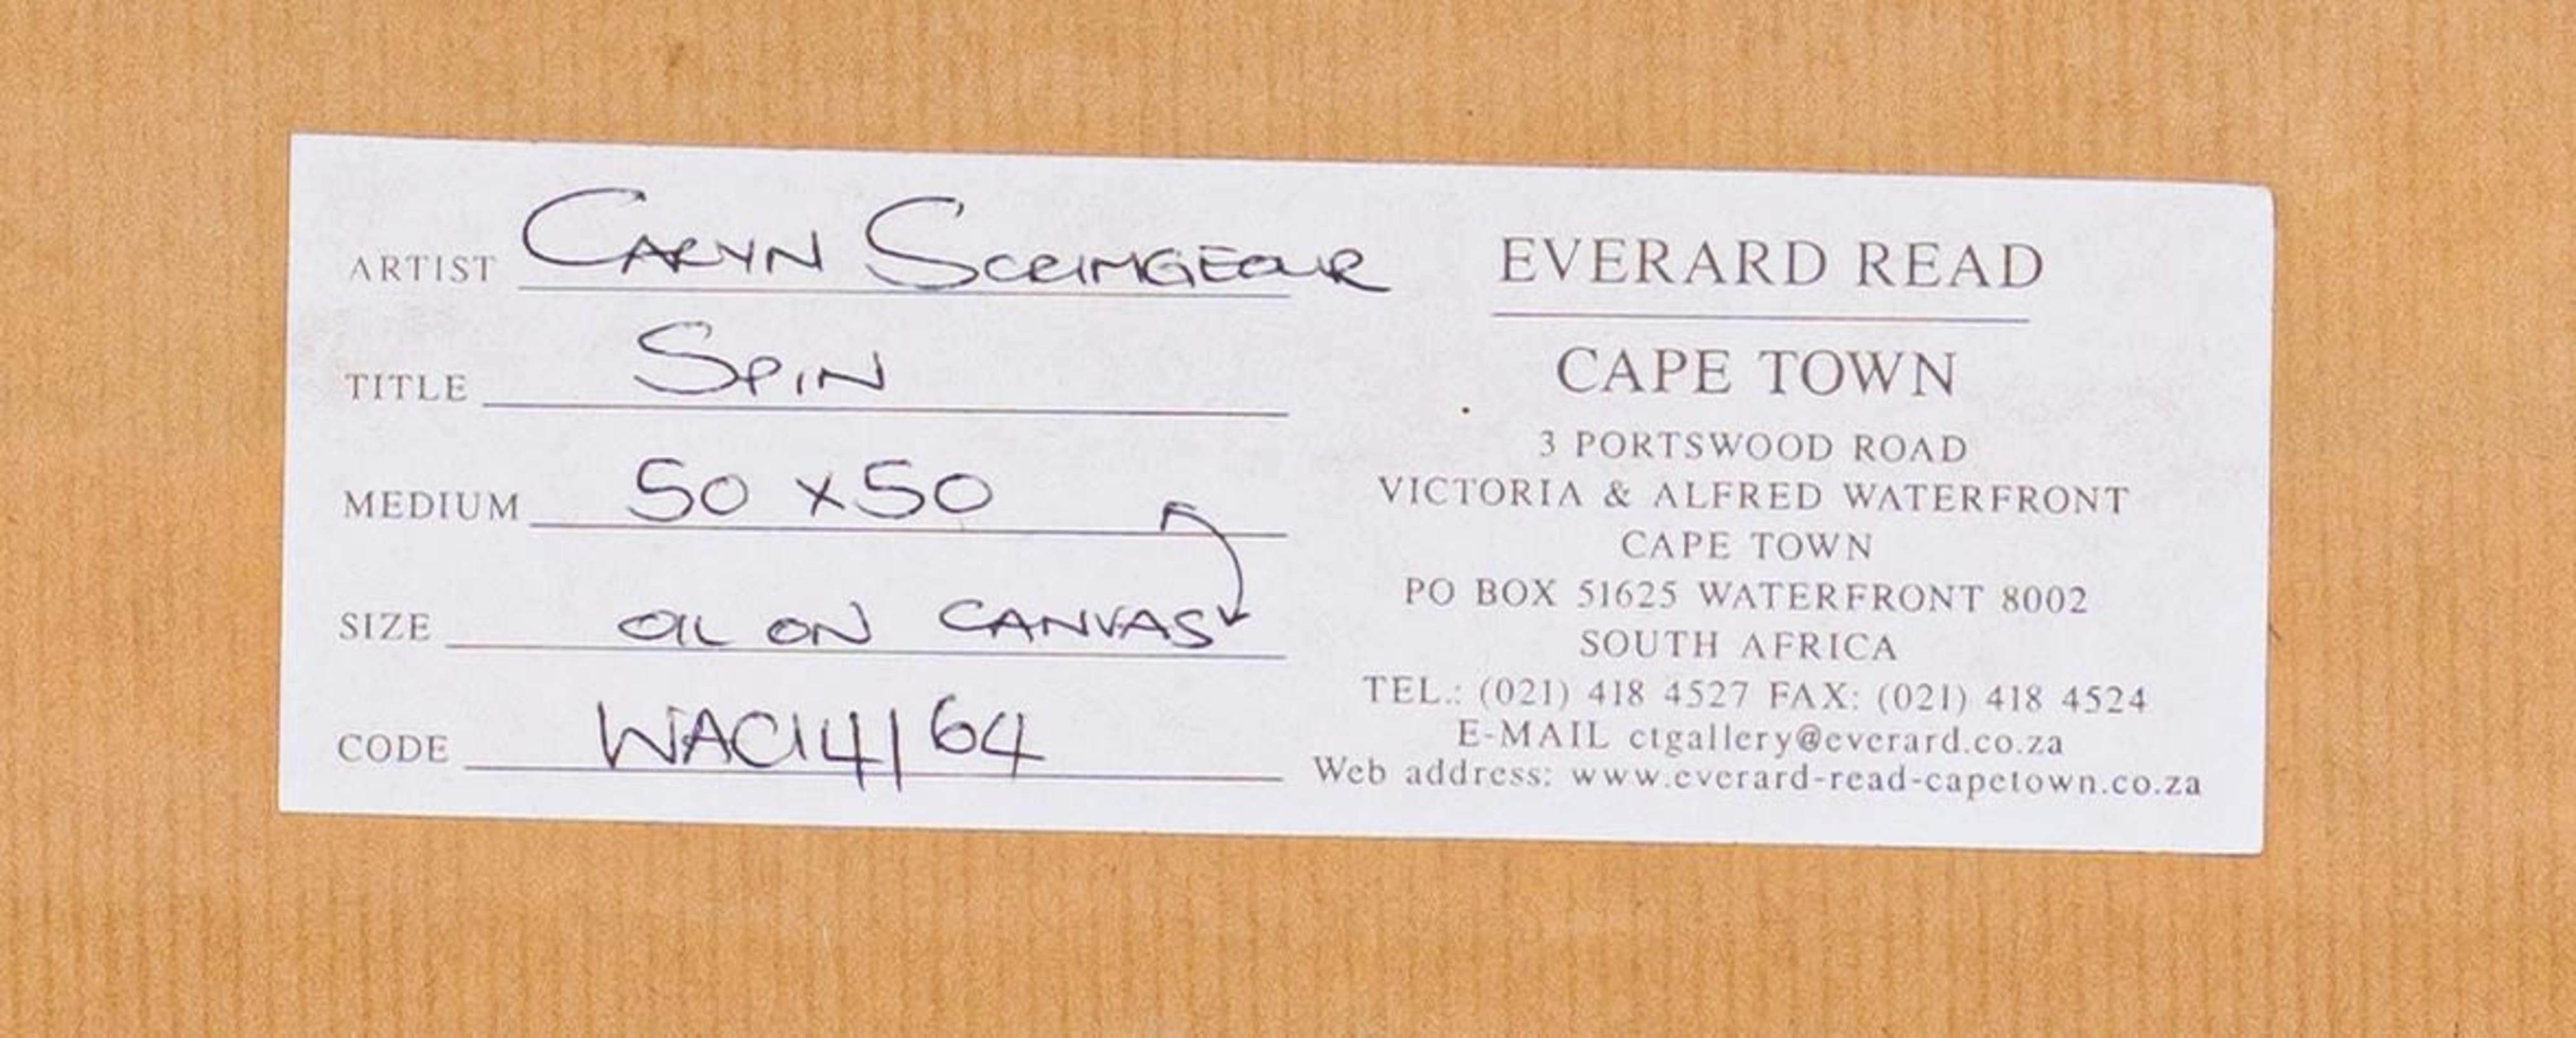 ARTIST CARYN SCRIMGEOUR
TITLE SPIN
MEDIUM 50 x 50
SIZE OIL ON CANVAS
CODE WAC14/64
EVERARD READ
CAPE TOWN
3 PORTSWOOD ROAD
VICTORIA & ALFRED WATERFRONT
CAPE TOWN
PO BOX 51625 WATERFRONT 8002
SOUTH AFRICA
TEL.: (021) 418 4527 FAX: (021) 418 4524
E-MAIL ctgallery@everard.co.za
Web address: www.everard-read-capetown.co.za